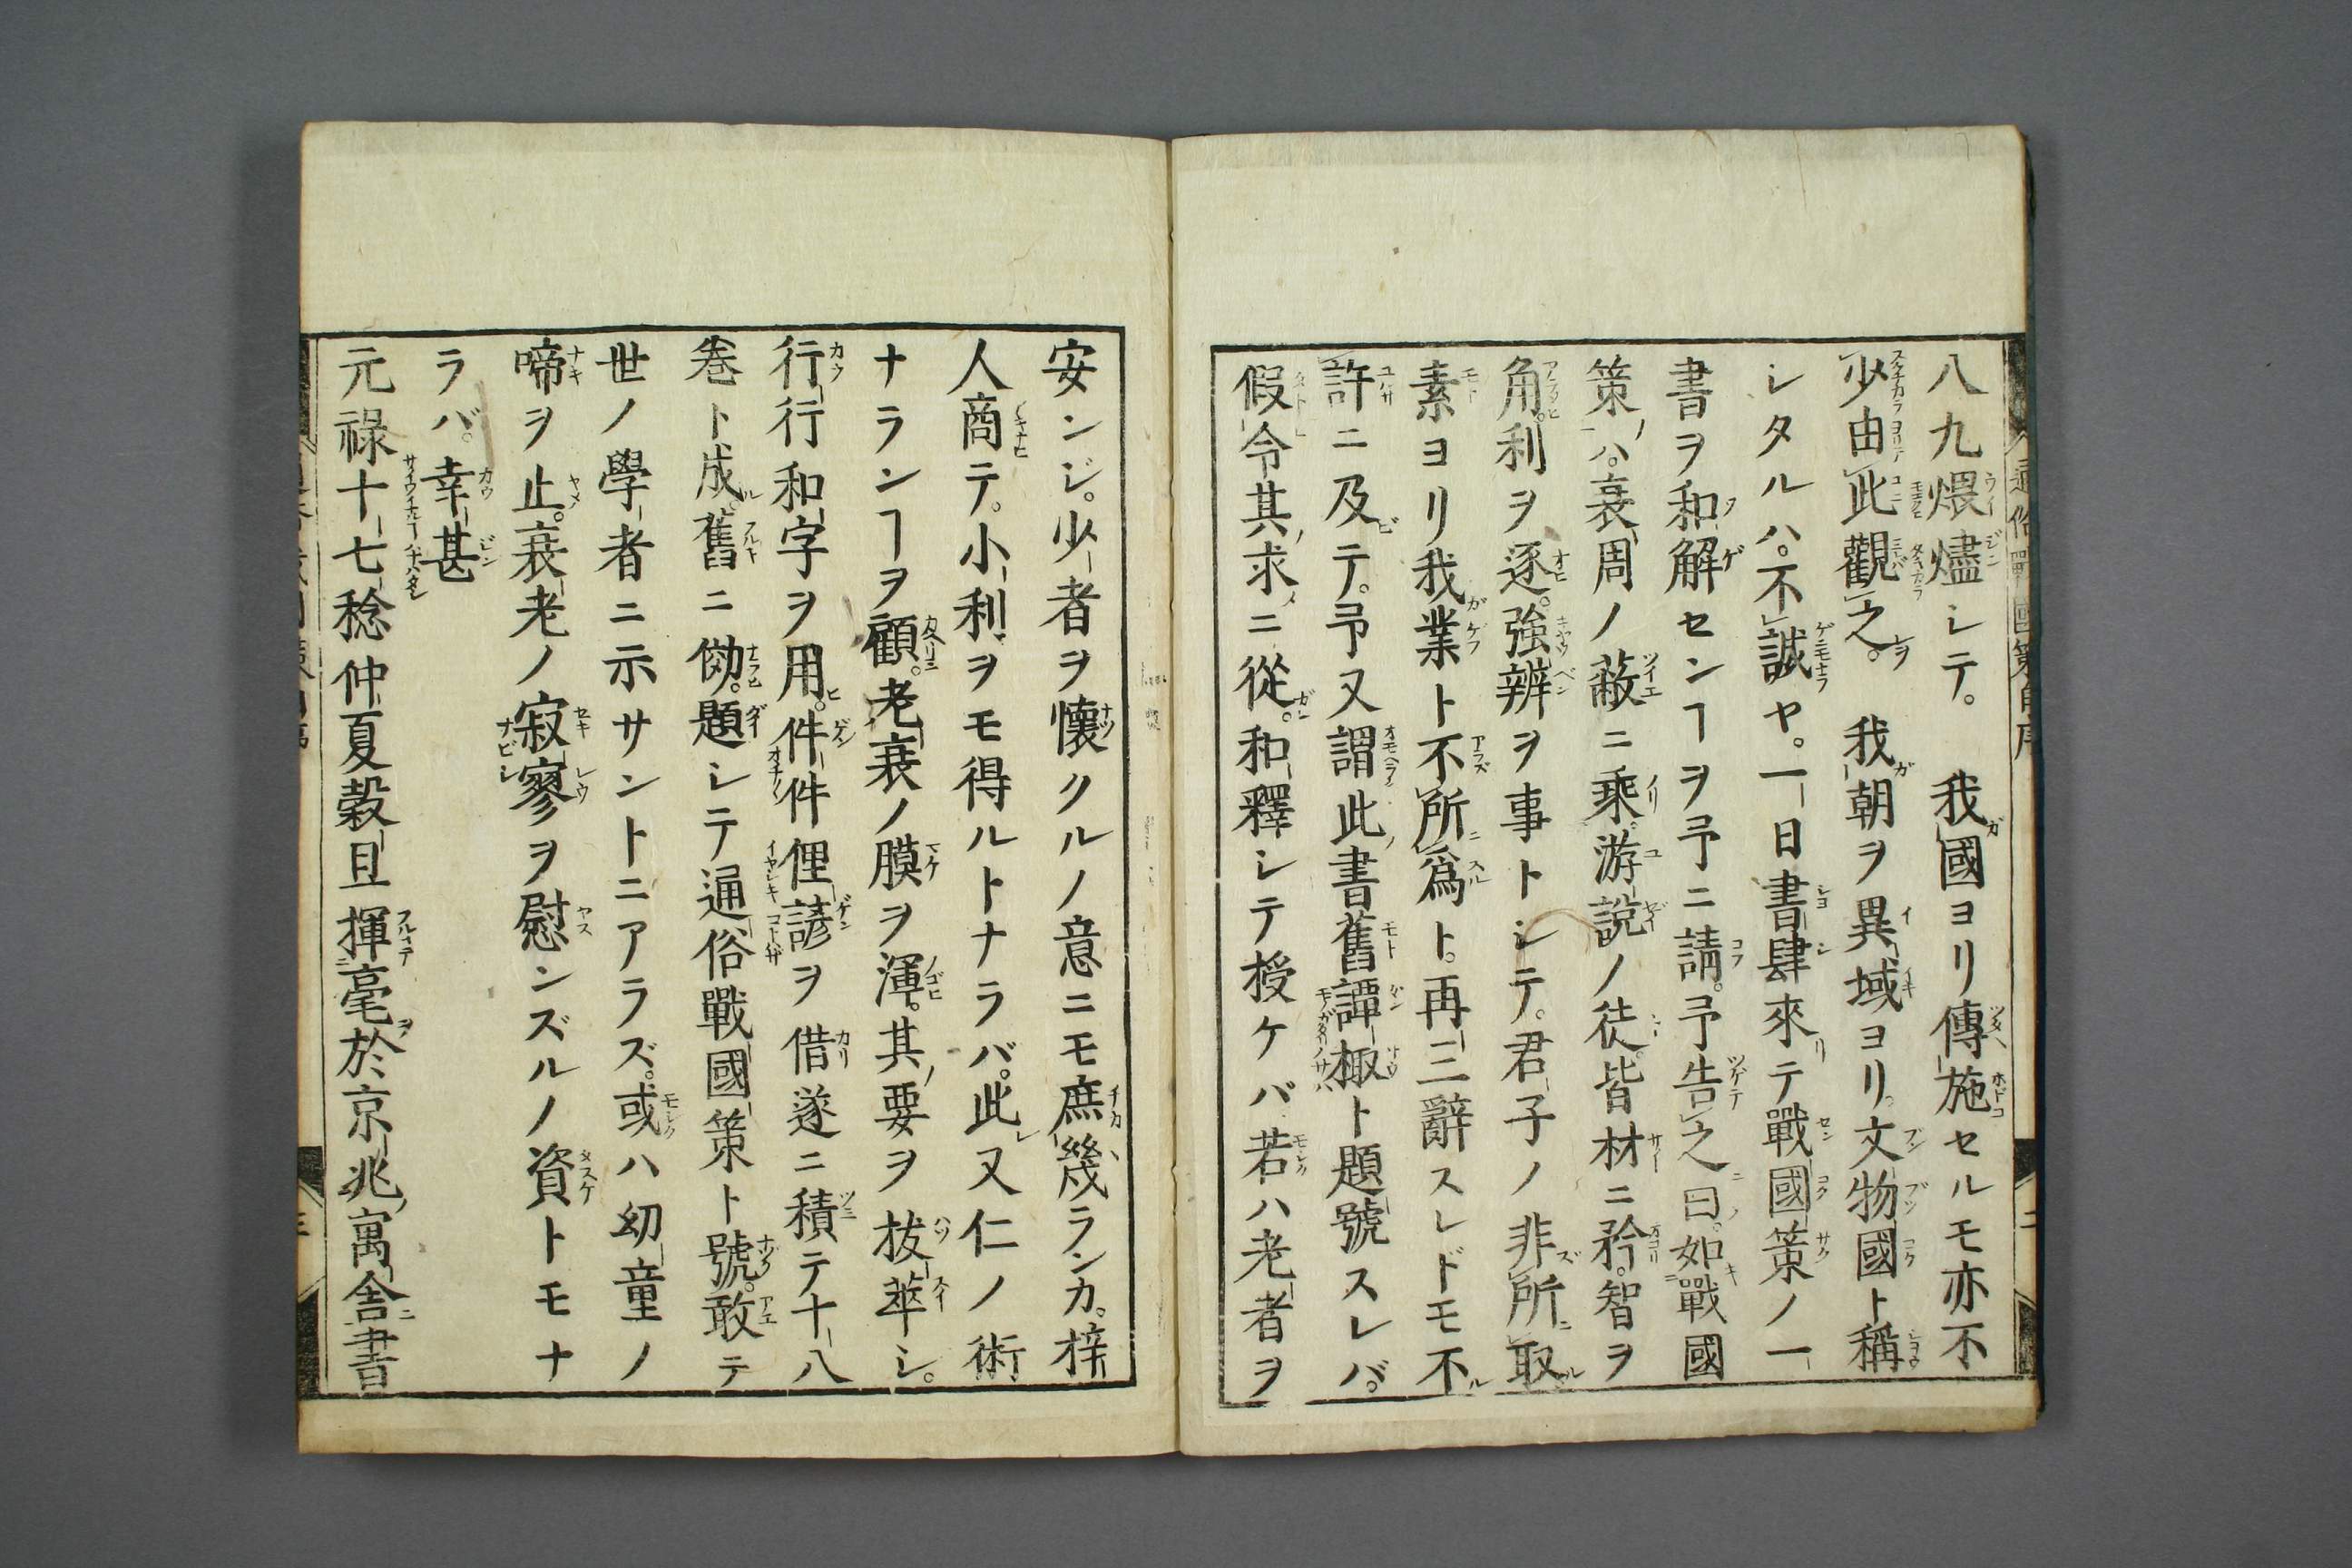 八九煨燼シテ。我國ヨリ傳施セルモ亦不
少由此觀之。我朝ヲ異域ヨリ文物國ト稱
シタルハ。不誠ヤ。一日書肆來テ戰國策ノ一
書ヲ和解センヿヲ予ニ請。予告之曰。如戰國
策ハ。衰周ノ蔽ニ乘。游説ノ徒。皆材ニ矜。智ヲ
角。利ヲ逐。強辨ヲ事トシテ。君子ノ非所取
素ヨリ我業ト不所爲ト。再三辭スレドモ不
許ニ及テ。予又謂此書舊譚極ト題號スレバ。
假令其求ニ從。和釋シテ授ケバ若ハ老者ヲ
安ンジ。少者ヲ懷クルノ意ニモ庶幾ランカ。梓
人商テ。小利ヲモ得ルトナラバ。此又仁ノ術
ナランヿヲ顧。老衰ノ膜ヲ渾。其要ヲ拔萃シ。
行行和字ヲ用。件件俚諺ヲ借遂ニ積テ十八
巻ト成。舊ニ倣。題シテ通俗戰國策ト號。敢テ
世ノ學者ニ示サントニアラズ。或ハ幼童ノ
啼ヲ止。衰老ノ寂寥ヲ慰ンズルノ資トモナ
ラバ。幸甚
元祿十七稔仲夏穀旦揮毫於京兆寓舎書